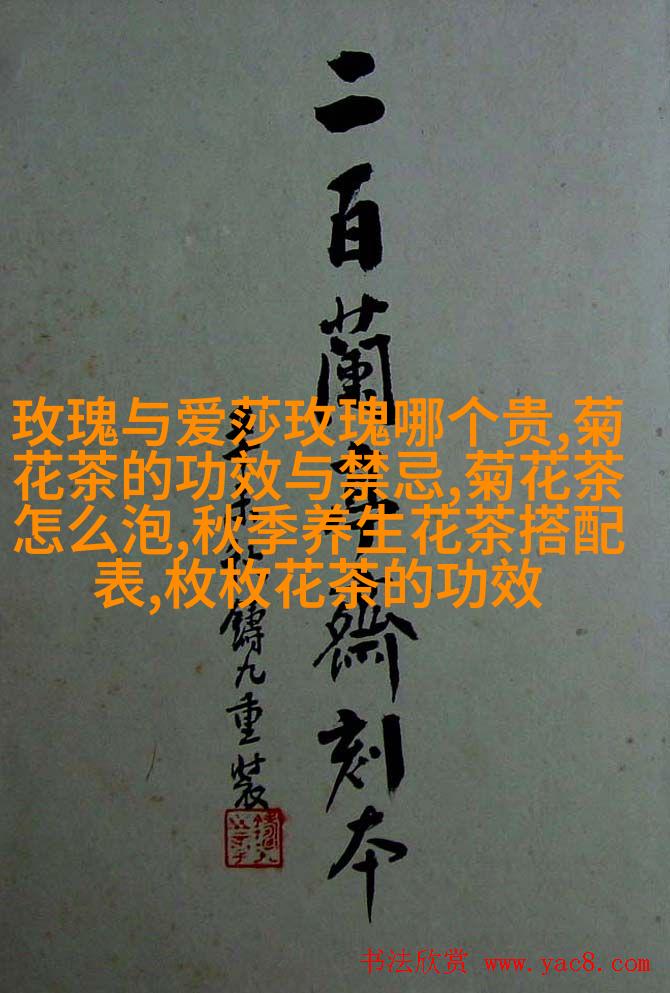 二百蘭亭齋刻本
鑄九重裝
玫瑰与爱莎玫瑰哪个贵,菊
花茶的功效与禁忌,菊花茶
怎么泡,秋季养生花茶搭配
表,枚枚花茶的功效
书法欣赏 www.yac8.com